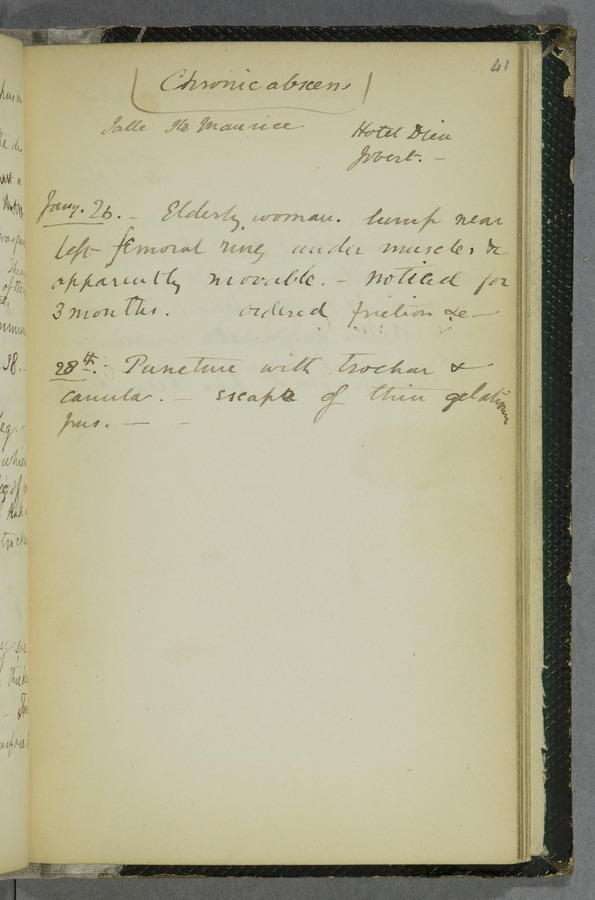 41
Chronic abscess
Salle Ste Maurice
Hotel Dieu
Jobert. -
Jany. 26. - Elderly woman. lump near
left femoral ring under muscles &
apparently movable. - noticed for
3 months. ordered friction &c -
28th. Puncture with trochar &
canula. - escape of thin gelatinous
pus. - -